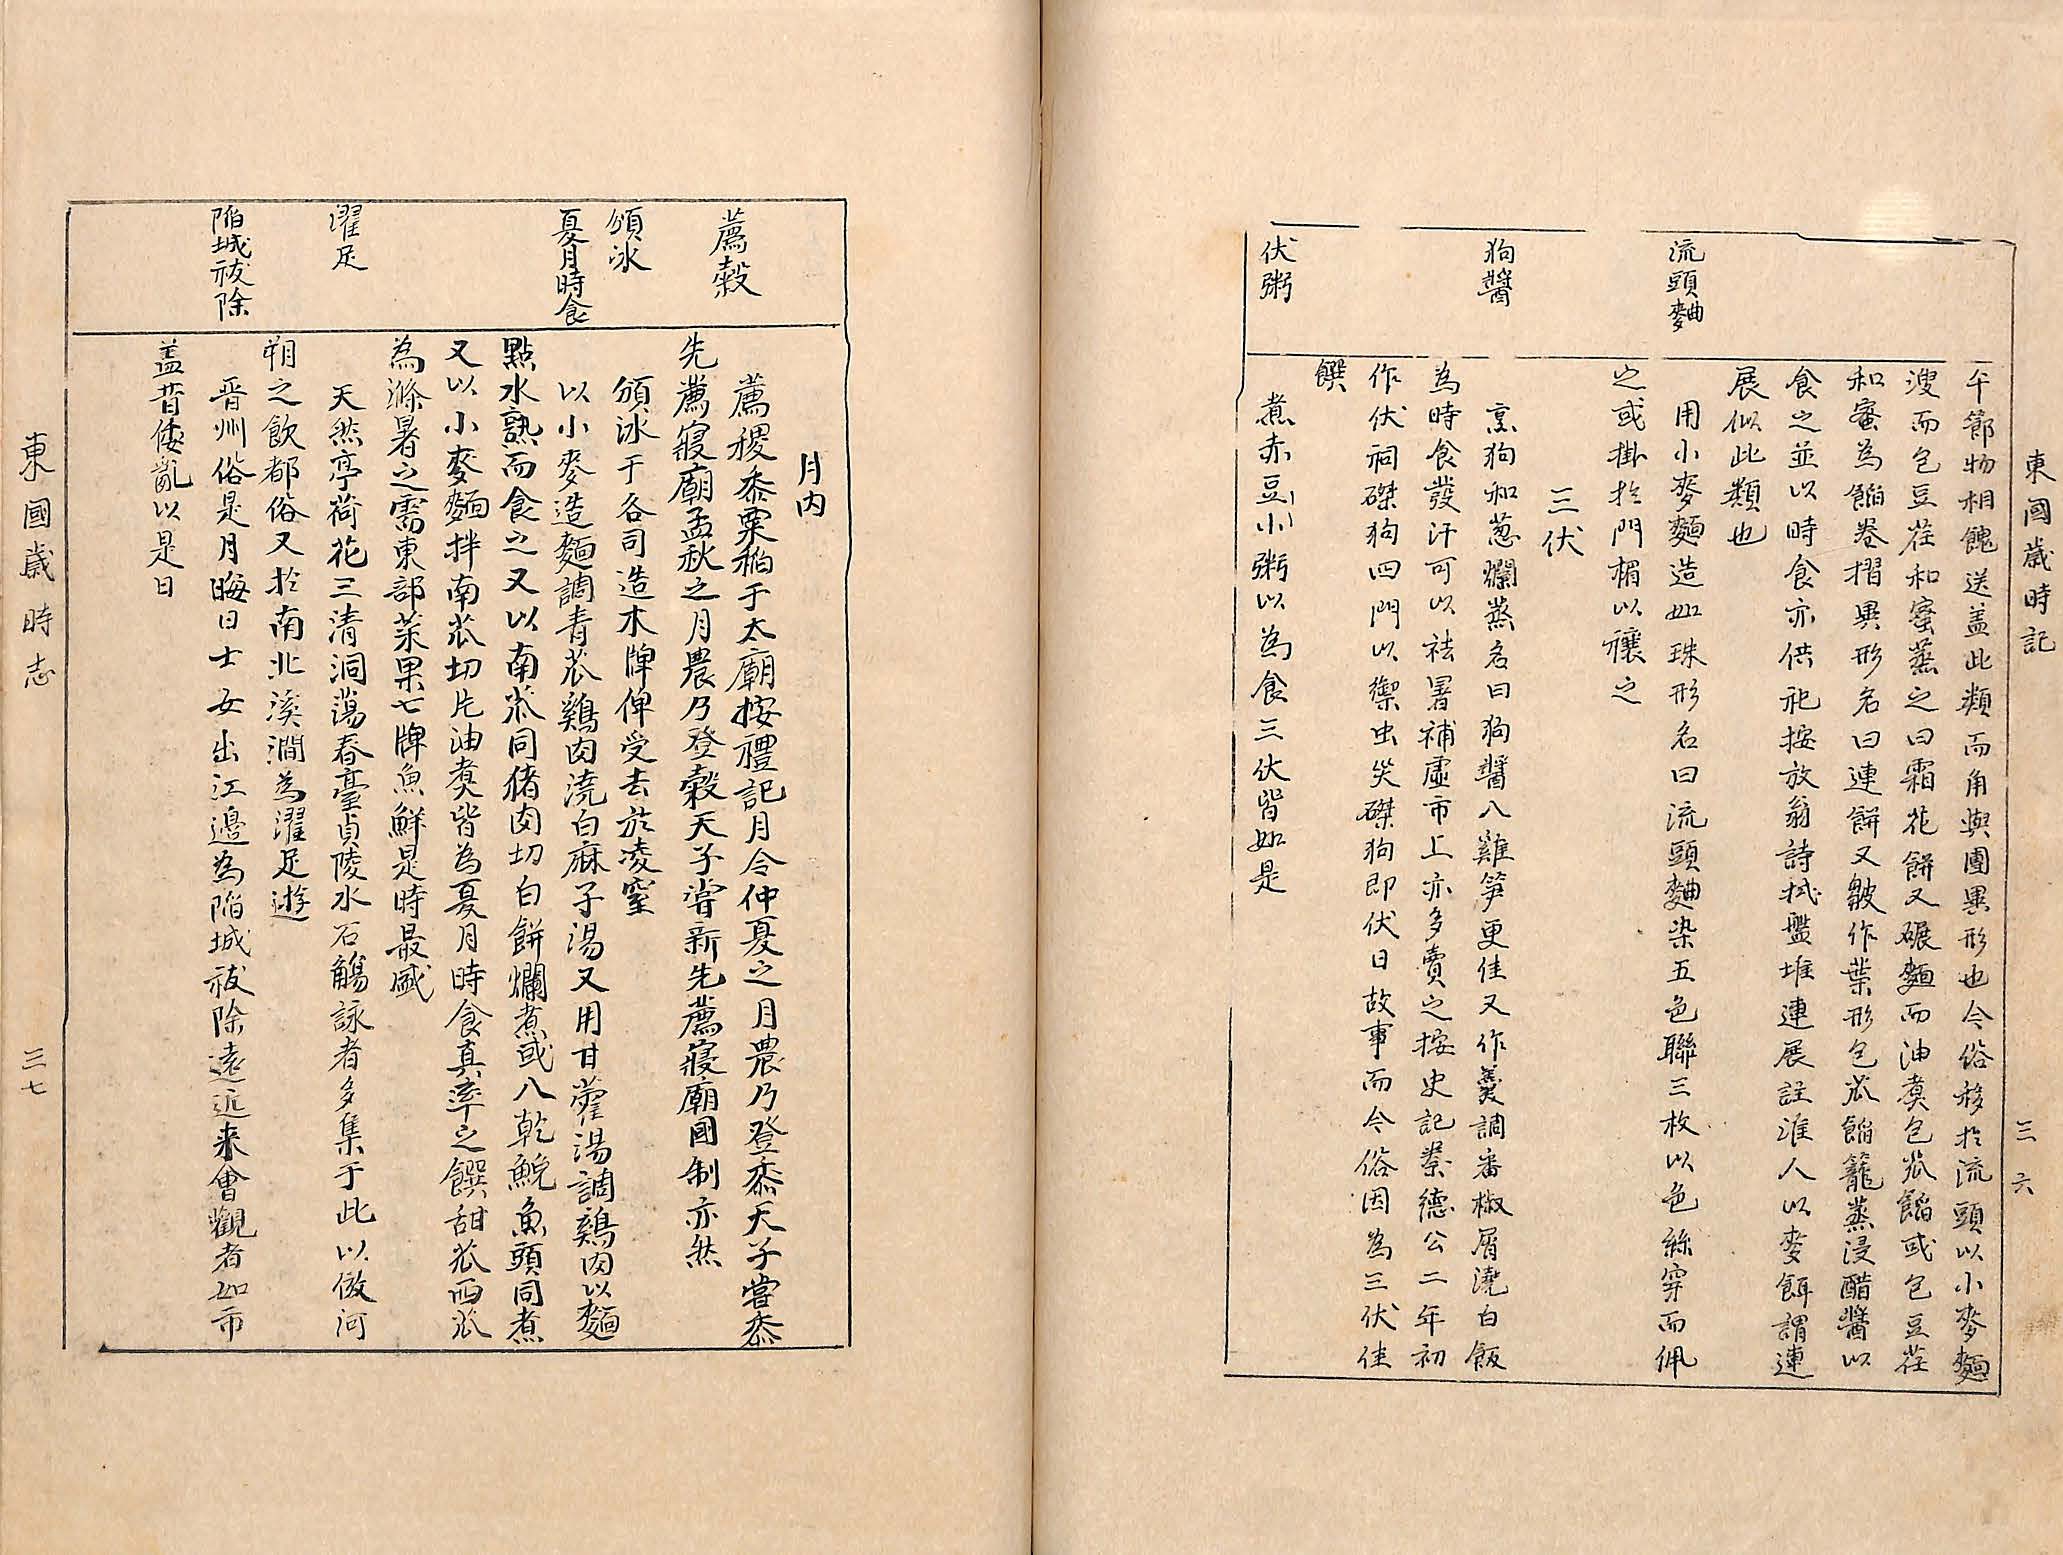 東國歲時記
三六
午節物相餽送盖此類而角與團異形也今俗移扵流頭以小麥麵
溲而包豆荏和蜜蒸之曰霜花餠又碾麵而油煑包苽餡或包豆荏
和蜜為餡卷摺異形名曰連餠又皺作葉形包苽餡籠蒸浸醋醬以
食之並以時食亦供祀按放翁詩拭盤堆連展註淮人以麥餌謂連
展似此類也
流頭麯
用小麥麵造如珠形名曰流頭麯染五色聯三枚以色絲穿而佩
之或掛扵門楣以禳之
三伏
狗醬
烹狗和葱爛蒸名曰狗醬入雞笋更佳又作羹調番椒屑澆白飯
為時食發汗可以祛暑補虛市上亦多賣之按史記秦德公二年初
作伏祠磔狗四門以禦虫災磔狗即伏日故事而今俗因為三伏佳
饌
伏粥
煮赤豆小粥以為食三伏皆如是
月内
薦穀
薦稷黍粟稻于太廟按禮記月令仲夏之月農乃登黍天子嘗黍
先薦寢廟孟秋之月農乃登穀天子嘗新先薦寢廟國制亦然
頒冰
頒冰于各司造木牌俾受去於凌室
夏月時食
以小麥造麵調青苽鷄肉澆白麻子湯又用甘藿湯調鷄肉以麵
點水熟而食之又以南苽同猪肉切白餠爛煮或入乾鮸魚頭同煮
又以小麥麵拌南苽切片油煑皆為夏月時食真率之饌甜苽西苽
為滌暑之需東部菜果七牌魚鮮是時最盛
濯足
天然亭荷花三清洞蕩春臺貞陵水石觴詠者多集于此以倣河
朔之飲都俗又扵南北溪澗為濯足遊
陷城祓除
晋州俗是月晦日士女出江邊為陷城祓除遠近来會觀者如市
盖昔倭亂以是日
東國歲時志
三七